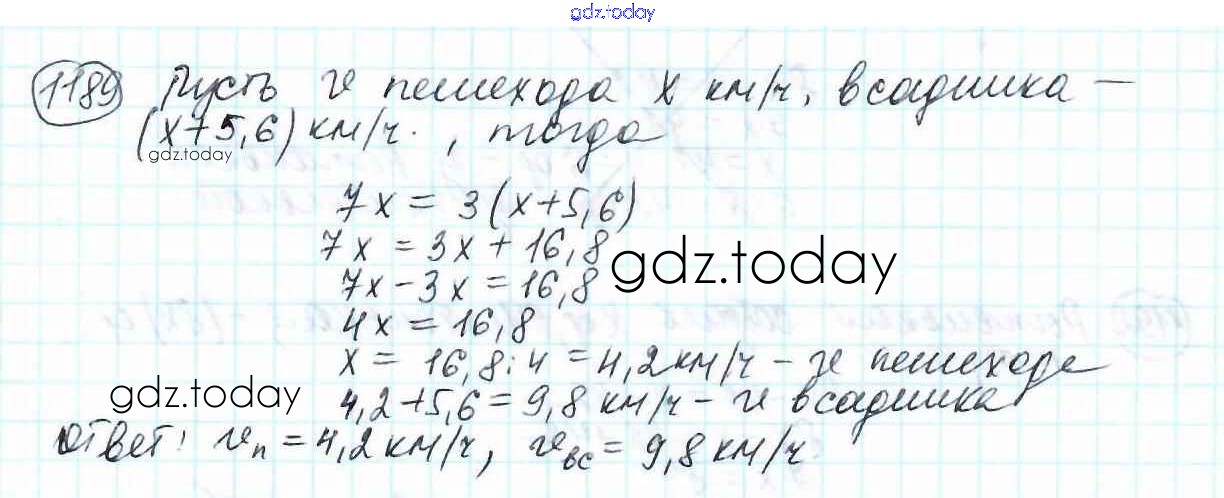 gdz.today
1189 Пусть v пешехода x км/ч, всадника —
(x+5,6) км/ч. , тогда
gdz.today
7x = 3(x+5,6)
7x = 3x + 16,8
gdz.today
7x - 3x = 16,8
4x = 16,8
x = 16,8 : 4 = 4,2 км/ч - v пешехода
gdz.today
4,2+5,6 = 9,8 км/ч - v всадника
Ответ: vп = 4,2 км/ч, vвс = 9,8 км/ч